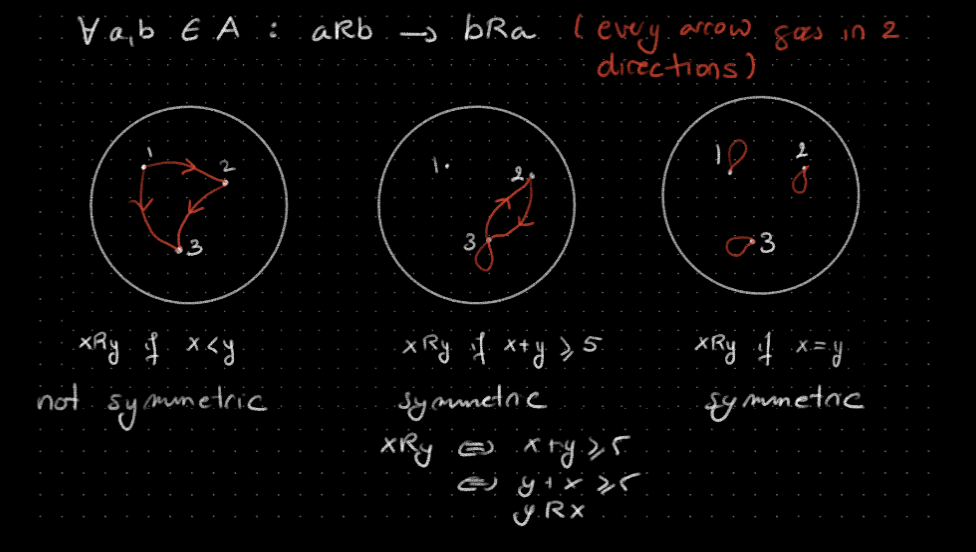 ∀ a,b ∈ A : aRb → bRa (every arrow goes in 2
directions)
1 2 3
1 2 3
1 2 3
xRy if x<y
not symmetric
xRy if x+y ⩾ 5
symmetric
xRy ⇔ x+y ⩾ 5
⇔ y+x ⩾ 5
yRx
xRy if x=y
symmetric